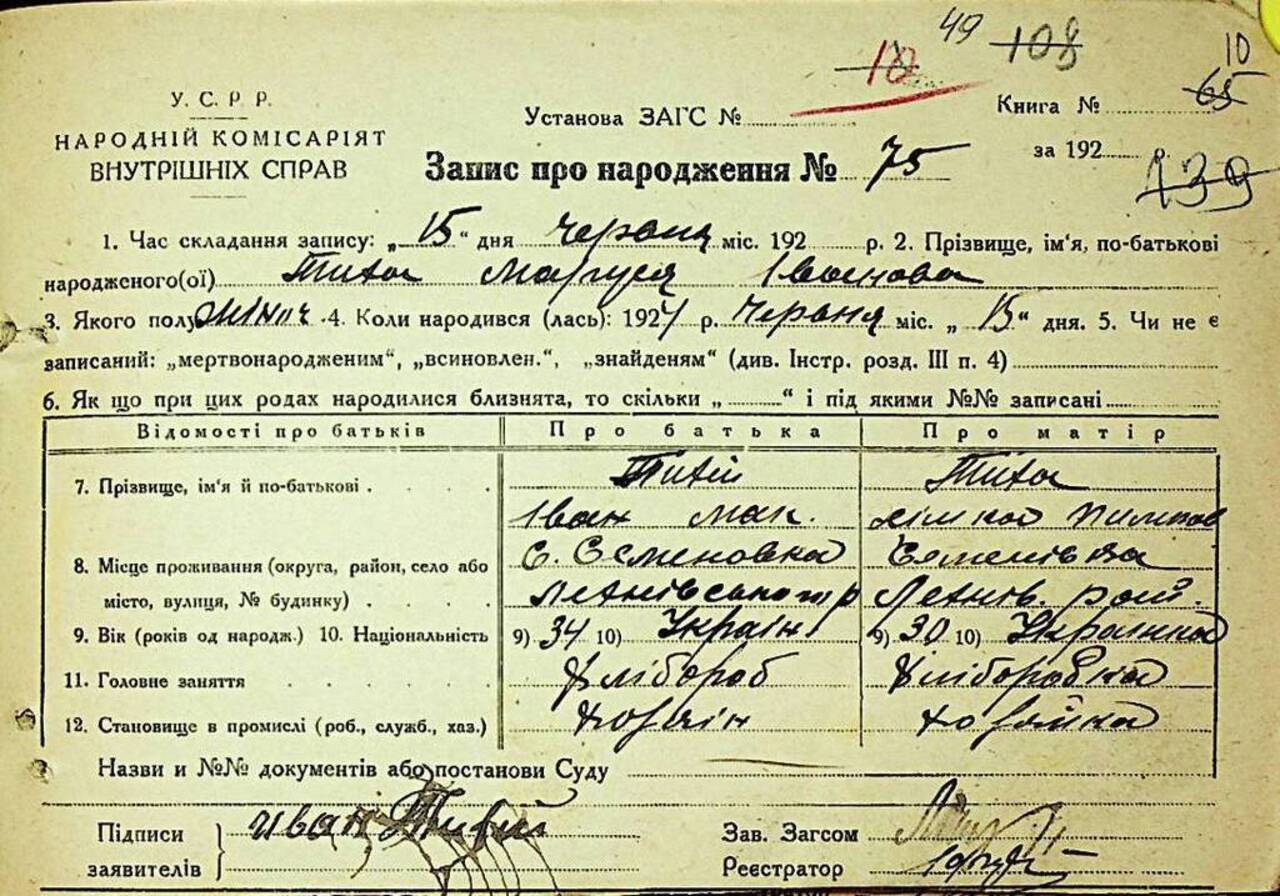 49 108 10
10 65
У. С. Р. Р.
НАРОДНІЙ КОМІСАРІЯТ
ВНУТРІШНІХ СПРАВ
Установа ЗАГС №
Книга №
за 192 р.
139
Запис про народження № 75
1. Час складання запису: „15“ дня Червня міс. 192 р. 2. Прізвище, ім'я, по-батькові
народженого(ої) Тиха Маруся Іванова
3. Якого полу жіноч. 4. Коли народився (лась): 1927 р. Червня міс. „15“ дня. 5. Чи не є
записаний: „мертвонародженим“, „всиновлен.“, „знайденям“ (див. Інстр. розд. III п. 4)
6. Як що при цих родах народилися близнята, то скільки „ “ і під якими №№ записані
Відомості про батьків Про батька Про матір
7. Прізвище, ім'я й по-батькові Тихій Тиха
Іван Мак.
8. Місце проживання (округа, район, село або С. Семеновка Семенівка
місто, вулиця, № будинку) Летнів. рай.
9. Вік (років од народж.) 10. Національність 9) 34 10) Україн 9) 30 10) Українка
11. Головне заняття Хлібороб Хліборобка
12. Становище в промислі (роб., служб., хаз.) Хозяін Хозяйка
Назви и №№ документів або постанови Суду
Підписи Иван Тихий Зав. Загсом
заявителів Реєстратор